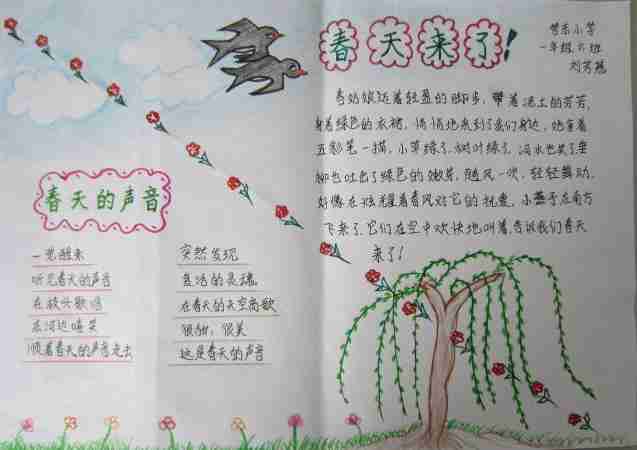 春天来了!
管东小学
一年级六班
春姑娘迈着轻盈的脚步,带着泥土的芳芳,
身着绿色的衣裙,悄悄地来到了我们身边,她拿着
五彩笔一描,小草绿了,树叶绿了,河水也笑了,垂
柳也吐出了绿色的嫩芽,随风一吹,轻轻舞动,
好像在炫耀着春风对它的祝意。小燕子在南方
飞来了,它们在空中欢快地叫着,告诉我们春天
来了!
春天的声音
一觉醒来
听见春天的声音
在放兴歌唱
在河边嘻笑
顺着春天的声音走去
突然发现
复活的灵魂
在春天的天空高歌
很甜,很美
这是春天的声音